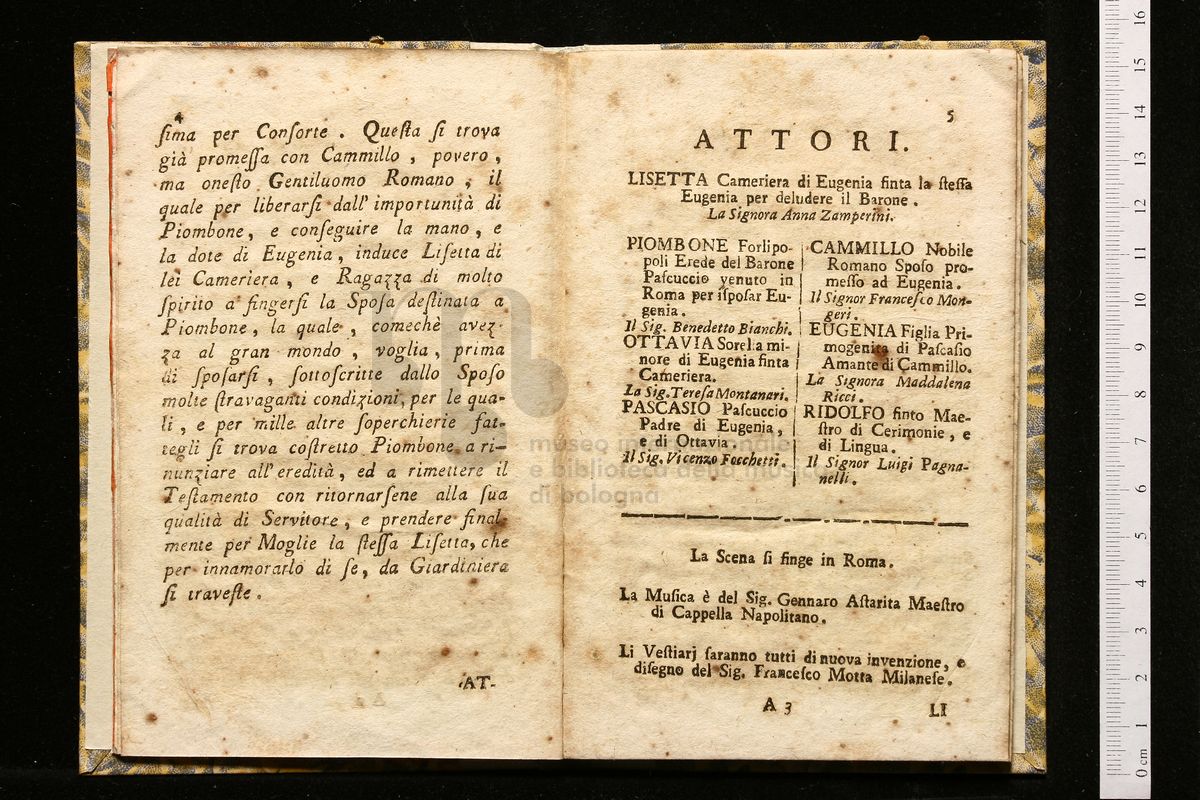 4
ſima per Conſorte . Queſta ſi trova
già promeſſa con Cammillo , povero ,
ma oneſto Gentiluomo Romano , il
quale per liberarſi dall' importunità di
Piombone , e conſeguire la mano , e
la dote di Eugenia , induce Liſetta di
lei Cameriera , e Ragazza di molto
ſpirito a fingerſi la Spoſa deſtinata a
Piombone , la quale , comechè avez-
za al gran mondo , voglia , prima
di ſpoſarſi , ſottoſcritte dallo Spoſo
molte ſtravaganti condizioni, per le qua-
li , e per mille altre ſoperchierie fat-
tegli ſi trova coſtretto Piombone a ri-
nunziare all' eredità , ed a rimettere il
Teſtamento con ritornarſene alla ſua
qualità di Servitore , e prendere final-
mente per Moglie la ſteſſa Liſetta, che
per innamorarlo di ſe, da Giardiniera
ſi traveſte .
AT-
5
ATTORI.
LISETTA Cameriera di Eugenia finta la ſteſſa
Eugenia per deludere il Barone .
La Signora Anna Zamperini.
PIOMBONE Forlipo-
poli Erede del Barone
Paſcuccio venuto in
Roma per iſpoſar Eu-
genia .
Il Sig. Benedetto Bianchi.
OTTAVIA Sorella mi-
nore di Eugenia finta
Cameriera.
La Sig. Tereſa Montanari.
PASCASIO Paſcuccio
Padre di Eugenia ,
e di Ottavia .
Il Sig. Vicenzo Focchetti.
CAMMILLO Nobile
Romano Spoſo pro-
meſſo ad Eugenia .
Il Signor Franceſco Mon-
geri .
EUGENIA Figlia Pri-
mogenita di Paſcaſio
Amante di Cammillo.
La Signora Maddalena
Ricci .
RIDOLFO finto Mae-
ſtro di Cerimonie , e
di Lingua .
Il Signor Luigi Pagna-
nelli .
La Scena ſi finge in Roma .
La Muſica è del Sig. Gennaro Aſtarita Maeſtro
di Cappella Napolitano .
Li Veſtiarj ſaranno tutti di nuova invenzione , e
diſegno del Sig. Franceſco Motta Milaneſe .
A 3
LI
museo internazionale
e biblioteca della musica
di bologna
0 cm 1 2 3 4 5 6 7 8 9 10 11 12 13 14 15 16